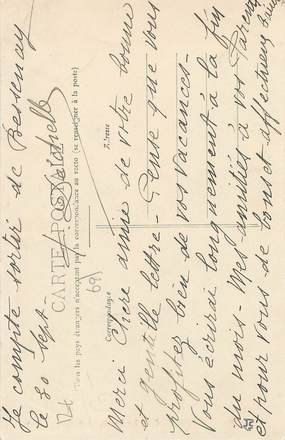 Je compte sortir de Bessenay
le 20 sept
CARTE POSTALE
(Tous les pays étrangers n'acceptent pas la correspondance au recto (se renseigner à la poste)
Correspondance
Adresse
69
Merci Chère amie de votre bonne
et gentille lettre – Pense que vous
profitez bien de vos vacances –
Vous écrirai longuement à la fin
du mois. Mes amitiés à vos Parents
et pour vous de bons et affectueux Baisers